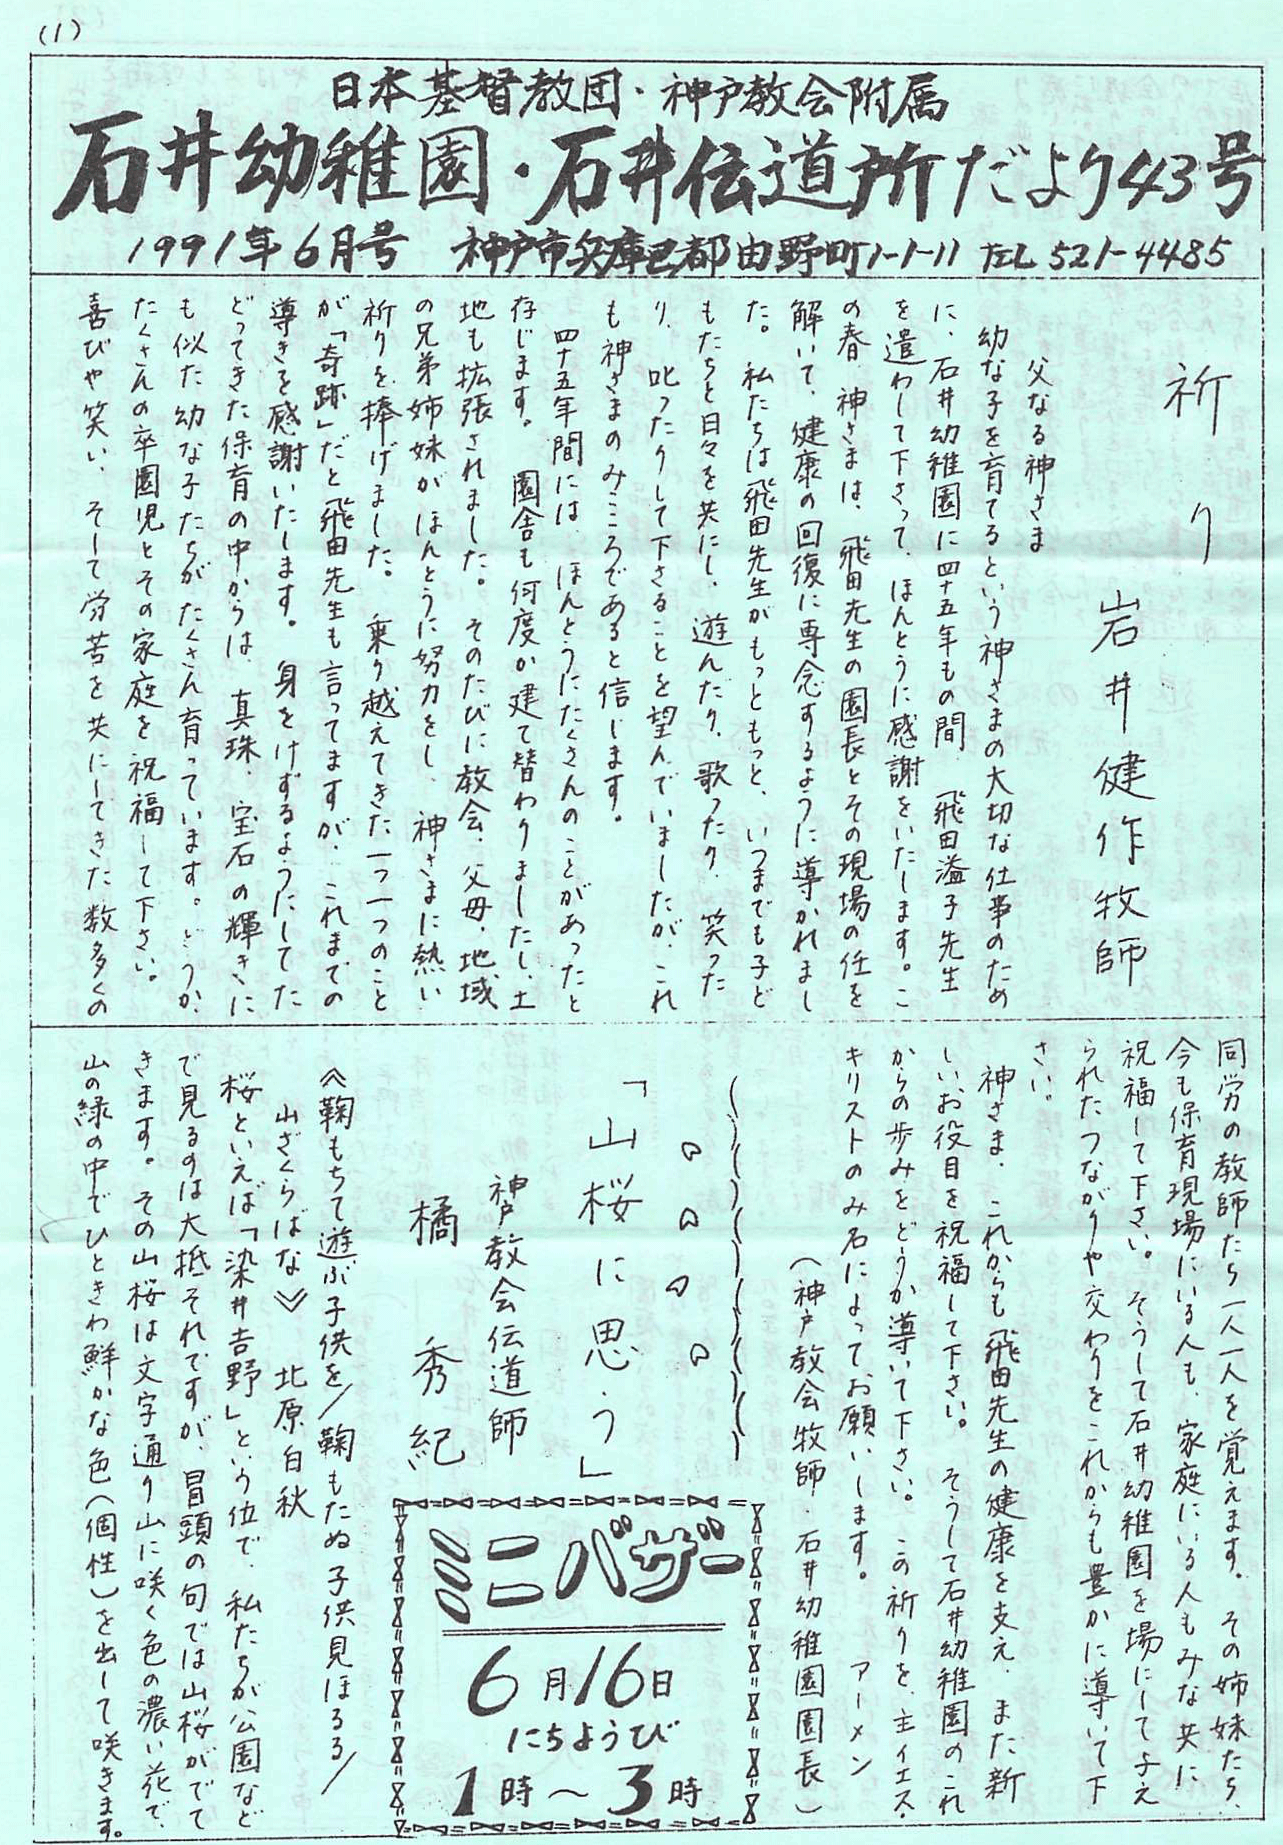 (1)
日本基督教団・神戸教会附属
石井幼稚園・石井伝道所だより43号
1991年6月号 神戸市兵庫区都由野町1-1-11 TEL 521-4485
祈り
岩井健作牧師
父なる神さま
幼な子を育てるという神さまの大切な仕事のため
に、石井幼稚園に四十五年もの間、飛田溢子先生
を遣わして下さって、ほんとうに感謝をいたします。こ
の春、神さまは、飛田先生の園長とその現場の任を
解いて、健康の回復に専念するように導かれまし
た。私たちは飛田先生がもっともっと、いつまでも子ど
もたちと日々を共にし、遊んだり、歌ったり、笑った
り、叱ったりして下さることを望んでいましたが、これ
も神さまのみこころであると信じます。
四十五年間には、ほんとうにたくさんのことがあったと
存じます。園舎も何度か建て替わりましたし、土
地も拡張されました。そのたびに教会、父母、地域
の兄弟姉妹がほんとうに努力をし、神さまに熱い
祈りを捧げました。乗り越えてきた一つ一つのこと
が「奇跡」だと飛田先生も言ってますが、これまでの
導きを感謝いたします。身をけずるようにしてた
どってきた保育の中からは、真珠、宝石の輝きに
も似た幼な子たちがたくさん育っています。どうか、
たくさんの卒園児とその家庭を祝福して下さい。
喜びや笑い、そして労苦を共にしてきた数多くの
同労の教師たち一人一人を覚えます。その姉妹たち、
今も保育現場にいる人も、家庭にいる人もみな共に
祝福して下さい。そうして石井幼稚園を場にして与え
られたつながりや交わりをこれからも豊かに導いて下
さい。
神さま、これからも飛田先生の健康を支え、また新
しいお役目を祝福して下さい。そうして石井幼稚園のこれ
からの歩みをどうか導いて下さい。この祈りを、主イエス・
キリストのみ名によってお願いします。 アーメン
(神戸教会牧師・石井幼稚園園長)
「山桜に思う」
神戸教会伝道師
橘 秀紀
≪鞠もちて遊ぶ子供を/鞠もたぬ子供見ほるる/
山ざくらばな≫ 北原白秋
桜といえば「染井吉野」という位で、私たちが公園など
で見るのは大抵それですが、冒頭の句では山桜がでて
きます。その山桜は文字通り山に咲く色の濃い花で、
山の緑の中でひときわ鮮かな色(個性)を出して咲きます。
ミニバザー
6月16日
にちようび
1時〜3時